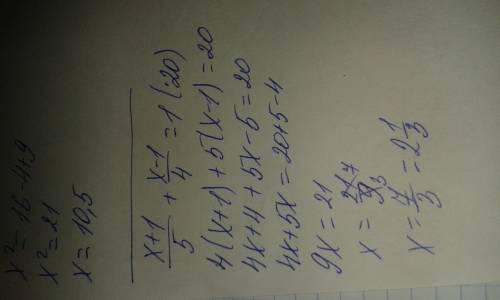 x² = 16 - 4 + 9
x² = 21
x = 10,5
x+1/5 + x-1/4 = 1 (·20)
4(x+1) + 5(x-1) = 20
4x + 4 + 5x - 5 = 20
4x + 5x = 20 + 5 - 4
9x = 21
x = 21 7/9 3
x = 7/3 = 2 1/3